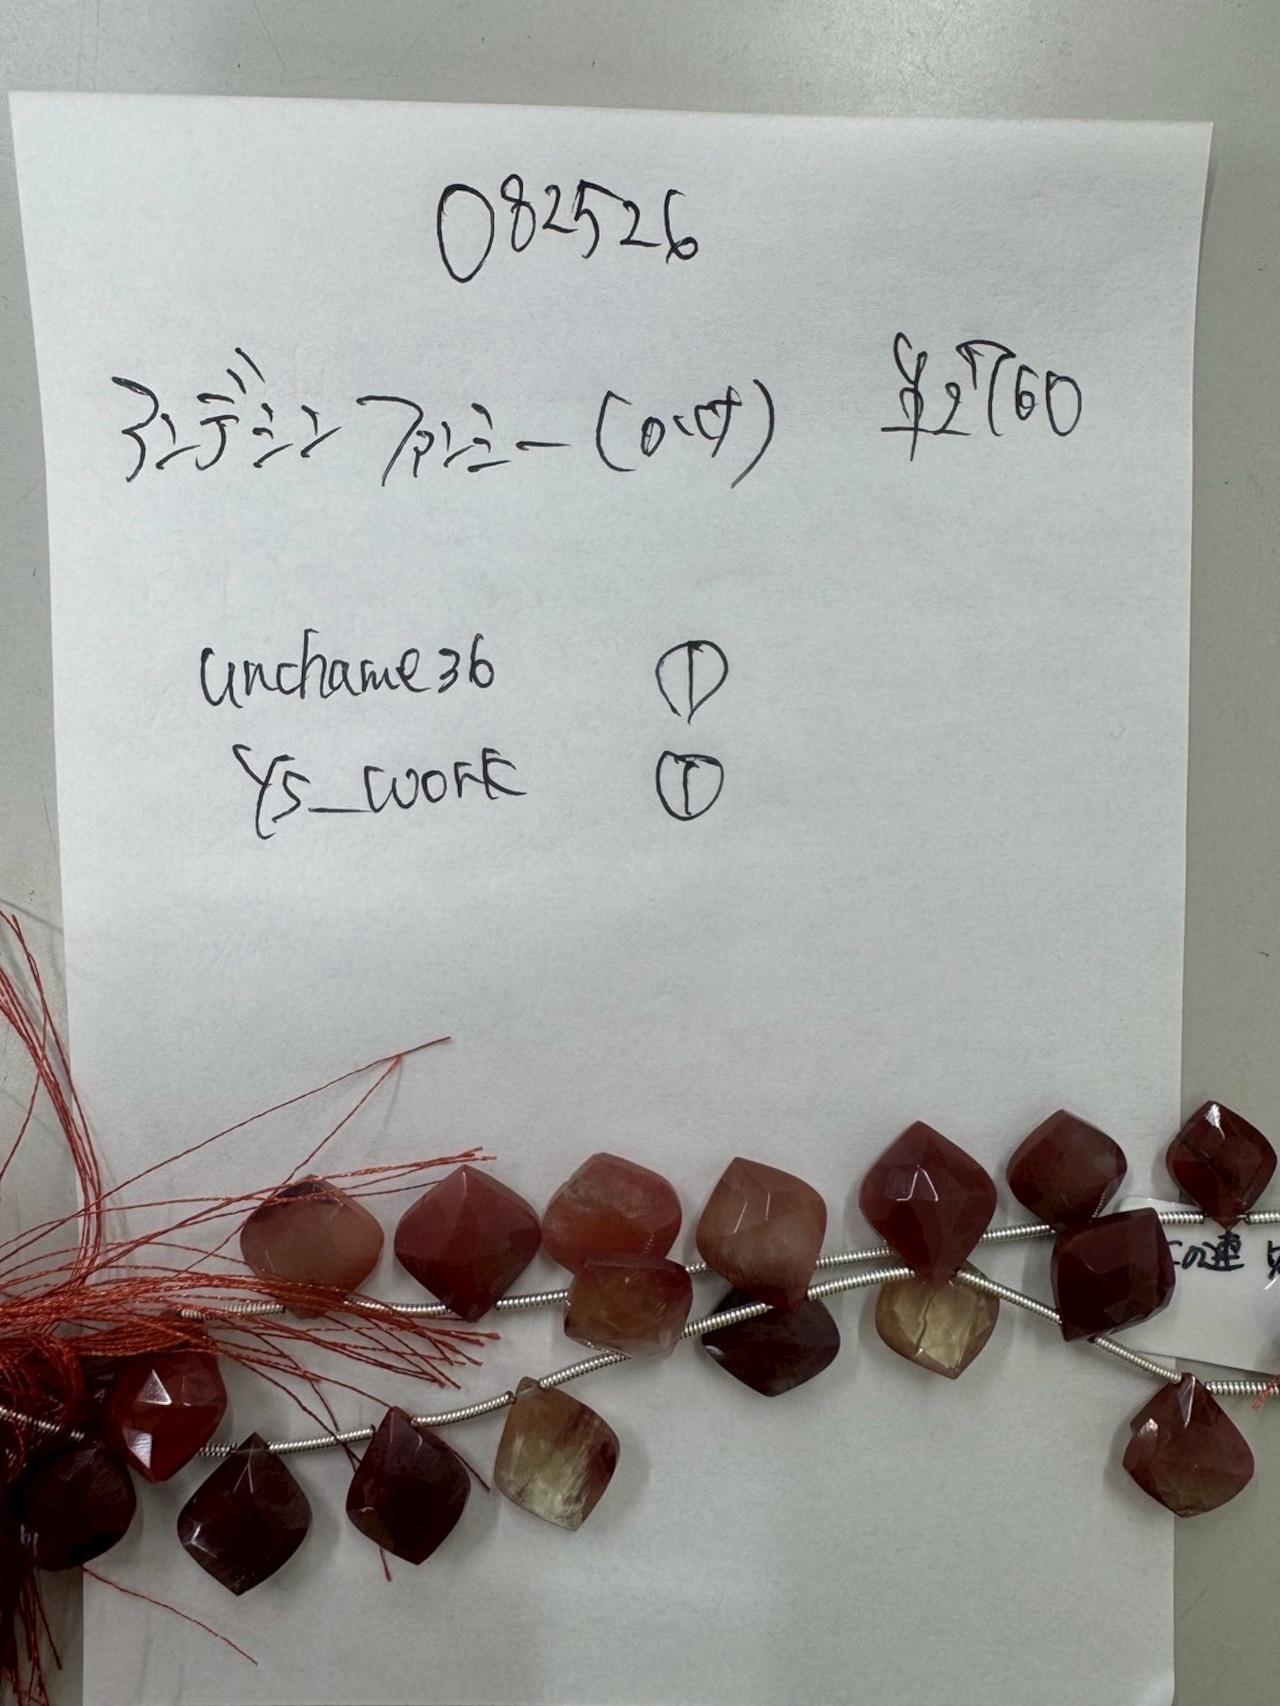 082526
アンデシン ファンシー(0.4) ¥2760
unchame36 ①
YS_work ①
の連